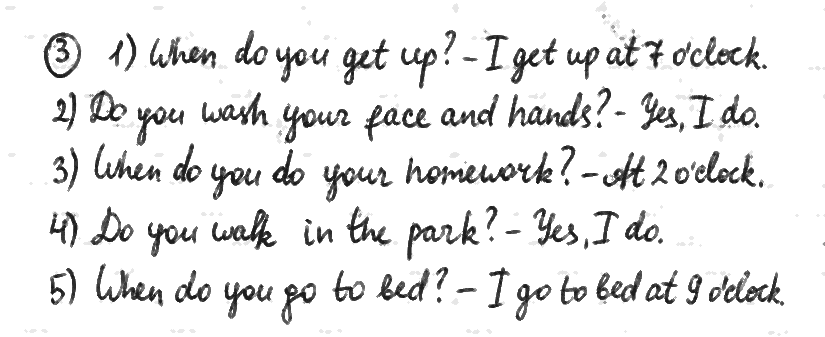 ③ 1) When do you get up? - I get up at 7 o'clock.
2) Do you wash your face and hands? - Yes, I do.
3) When do you do your homework? - At 2 o'clock.
4) Do you walk in the park? - Yes, I do.
5) When do you go to bed? - I go to bed at 9 o'clock.